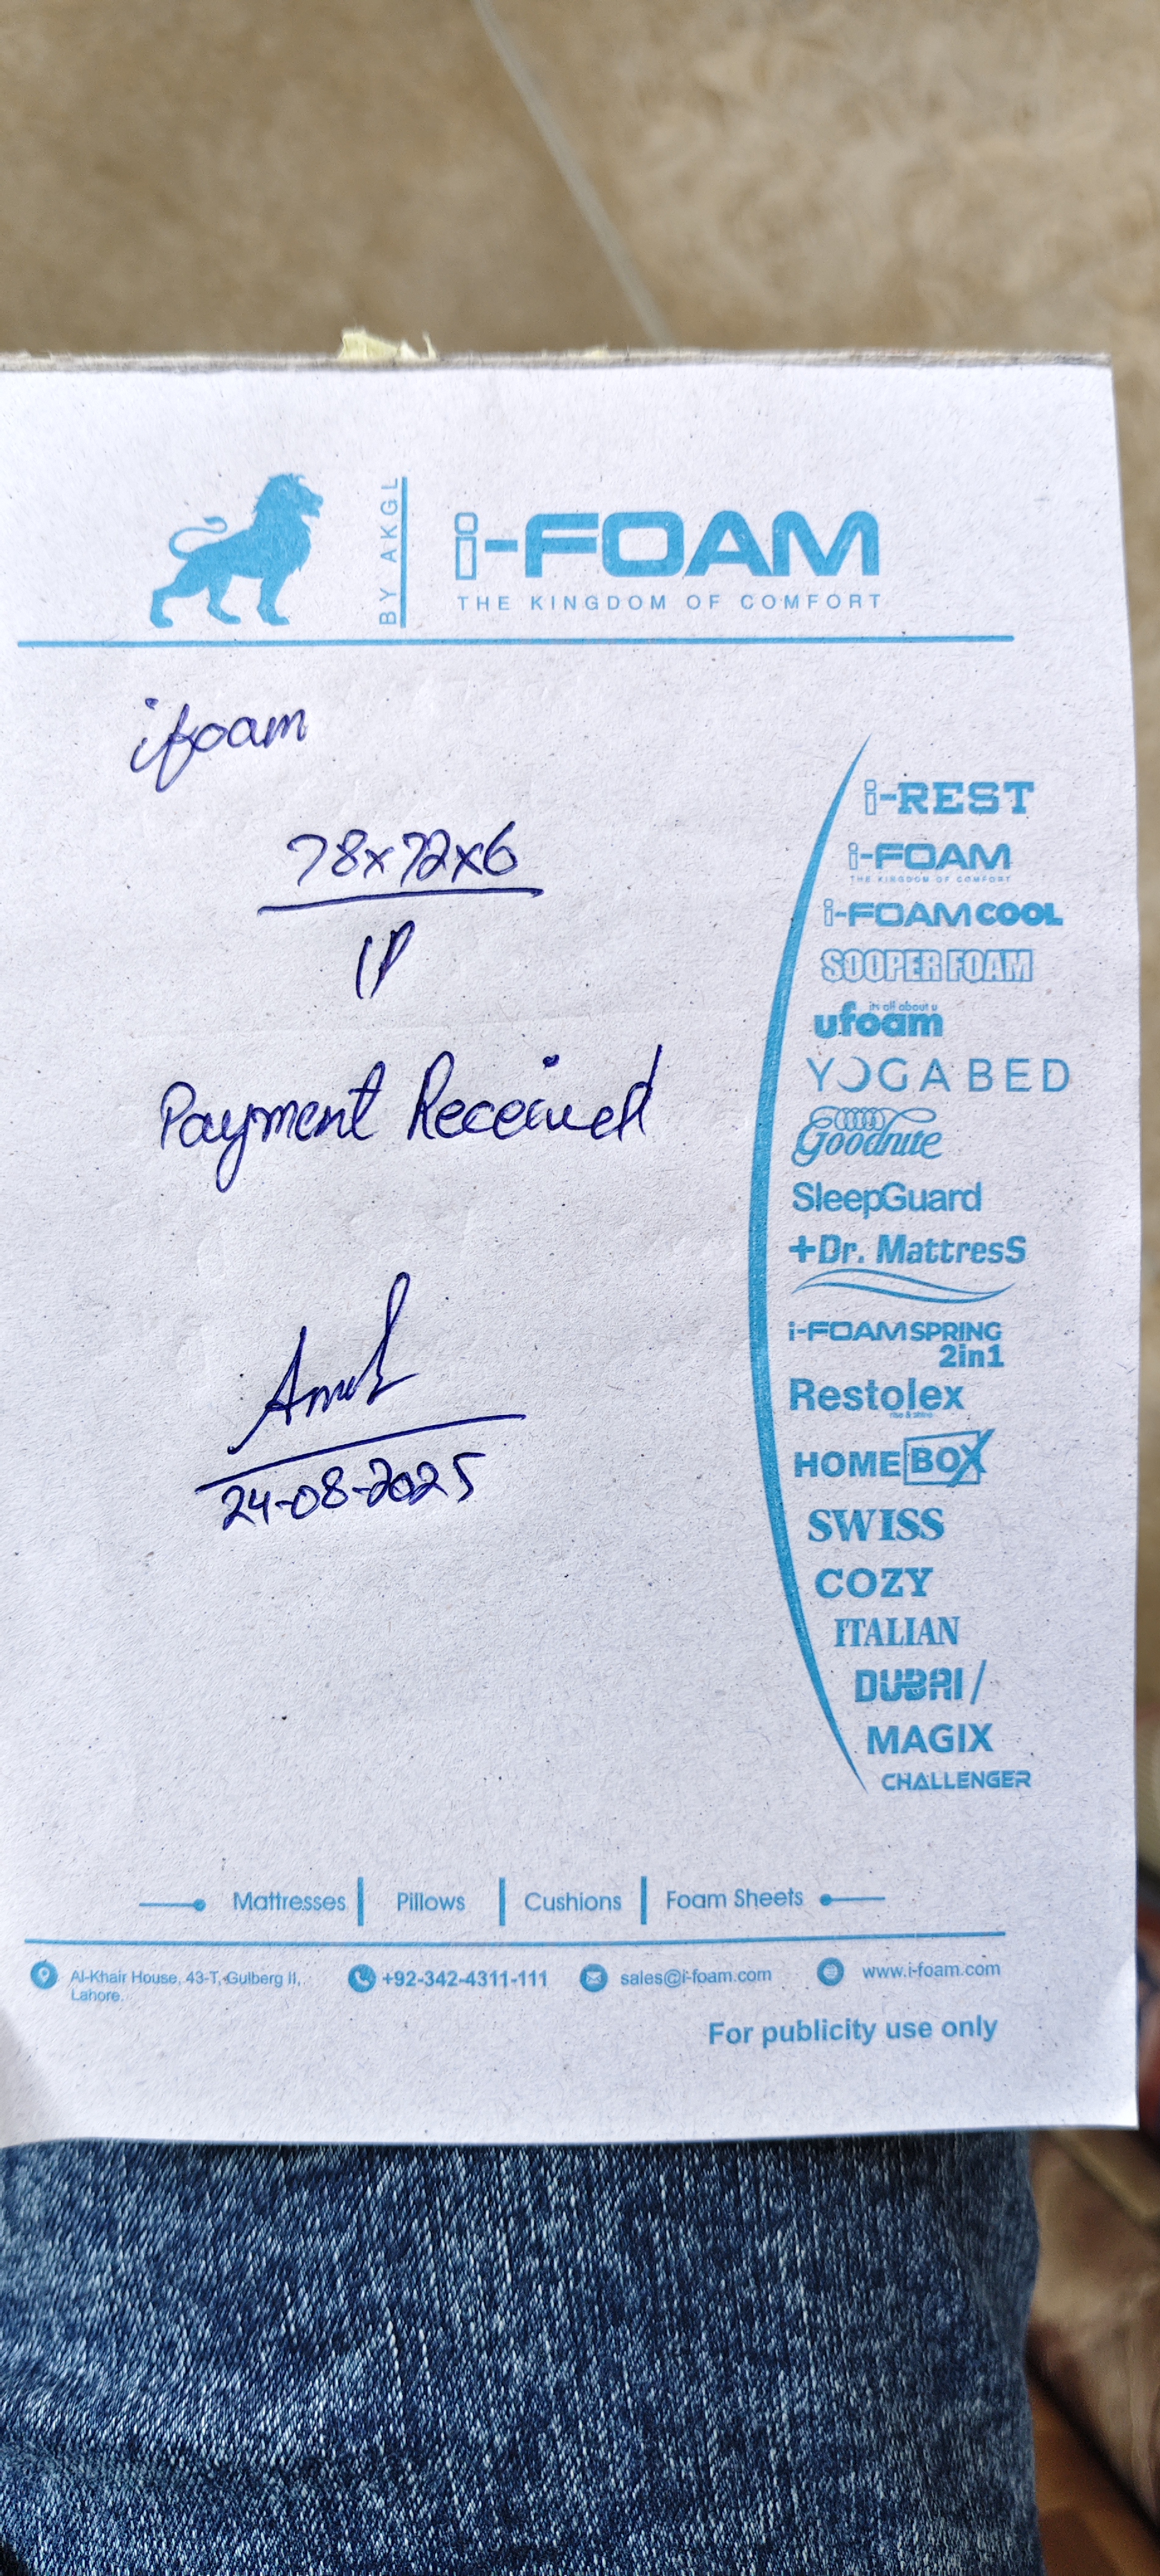 BY AKGL
i-FOAM
THE KINGDOM OF COMFORT
ifoam
78x72x6
1P
Payment Received
24-08-2025
i-REST
i-FOAM
THE KINGDOM OF COMFORT
i-FOAM COOL
SOOPER FOAM
its all about u
ufoam
YOGA BED
Goodnite
SleepGuard
+Dr. MattresS
i-FOAM SPRING
2in1
Restolex
rise & shine
HOME BOX
SWISS
COZY
ITALIAN
DUBAI /
MAGIX
CHALLENGER
Mattresses | Pillows | Cushions | Foam Sheets
Al-Khair House, 43-T, Gulberg II,
Lahore.
+92-342-4311-111
sales@i-foam.com
www.i-foam.com
For publicity use only